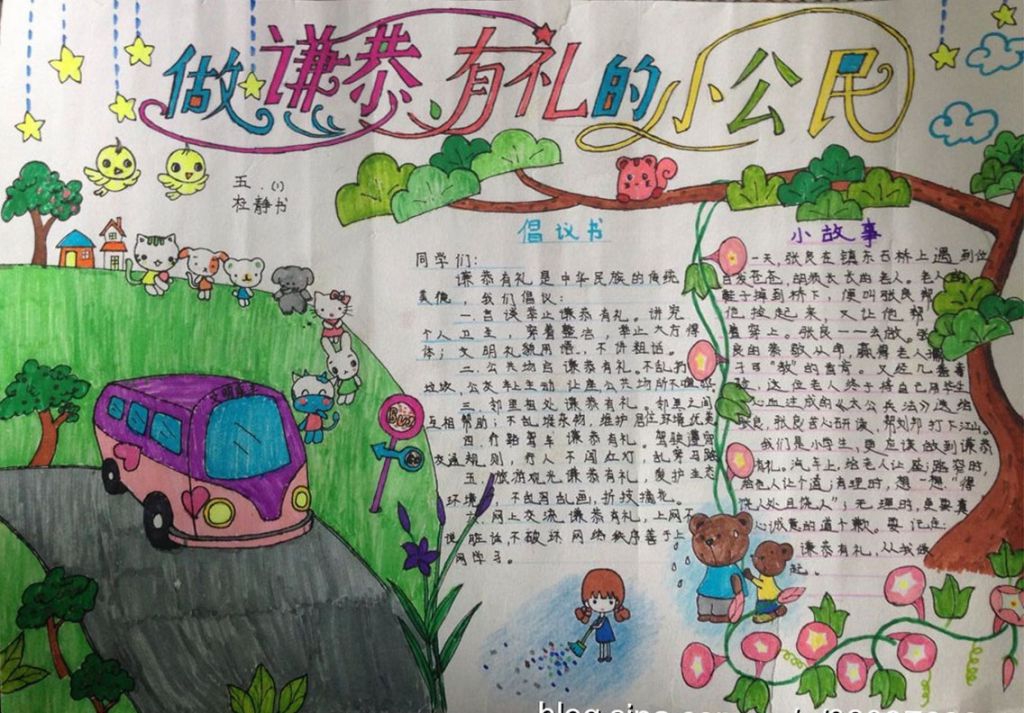 做谦恭有礼的小公民
五.(1)
杜静书
倡议书
同学们:
谦恭有礼是中华民族的传统
美德,我们倡议:
一.言谈举止谦恭有礼。讲究
个人卫生,穿着整洁,举止大方得
体;文明礼貌用语,不讲粗话。
二.公共场合谦恭有礼。不乱扔
垃圾,公交车上主动让座公共场所不喧哗
三.邻里相处谦恭有礼。邻里之间
互相帮助;不乱堆杂物,维护居住环境优美
四.行路驾车谦恭有礼。驾驶遵守
交通规则,行人不闯红灯,乱穿马路
五.旅游观光谦恭有礼,爱护生态
环境,不乱写乱画,折枝摘花。
六.网上交流谦恭有礼,上网不
说脏话,不破坏网络秩序善于上
网学习。
小故事
一天,张良在镇东石桥上遇到位
白发苍苍,胡须长长的老人。老人的
鞋子掉到桥下,便叫张良帮
他捡起来,又让他帮
着穿上。张良一一去做。张
良的恭敬从命,赢得老人
又经几番考
这位老人终于将自己用毕生
心血注成的《太公兵法》送给
张良,张良苦心研读,帮刘邦打下江山。
我们是小学生,更应该做到谦恭
有礼。汽车上,给老人让座;路窄时,
给老人让个道;有理时,想一想"得
饶人处且饶人",无理时,更要真
心诚意的道个歉。要记住
谦恭有礼,从我做
起。